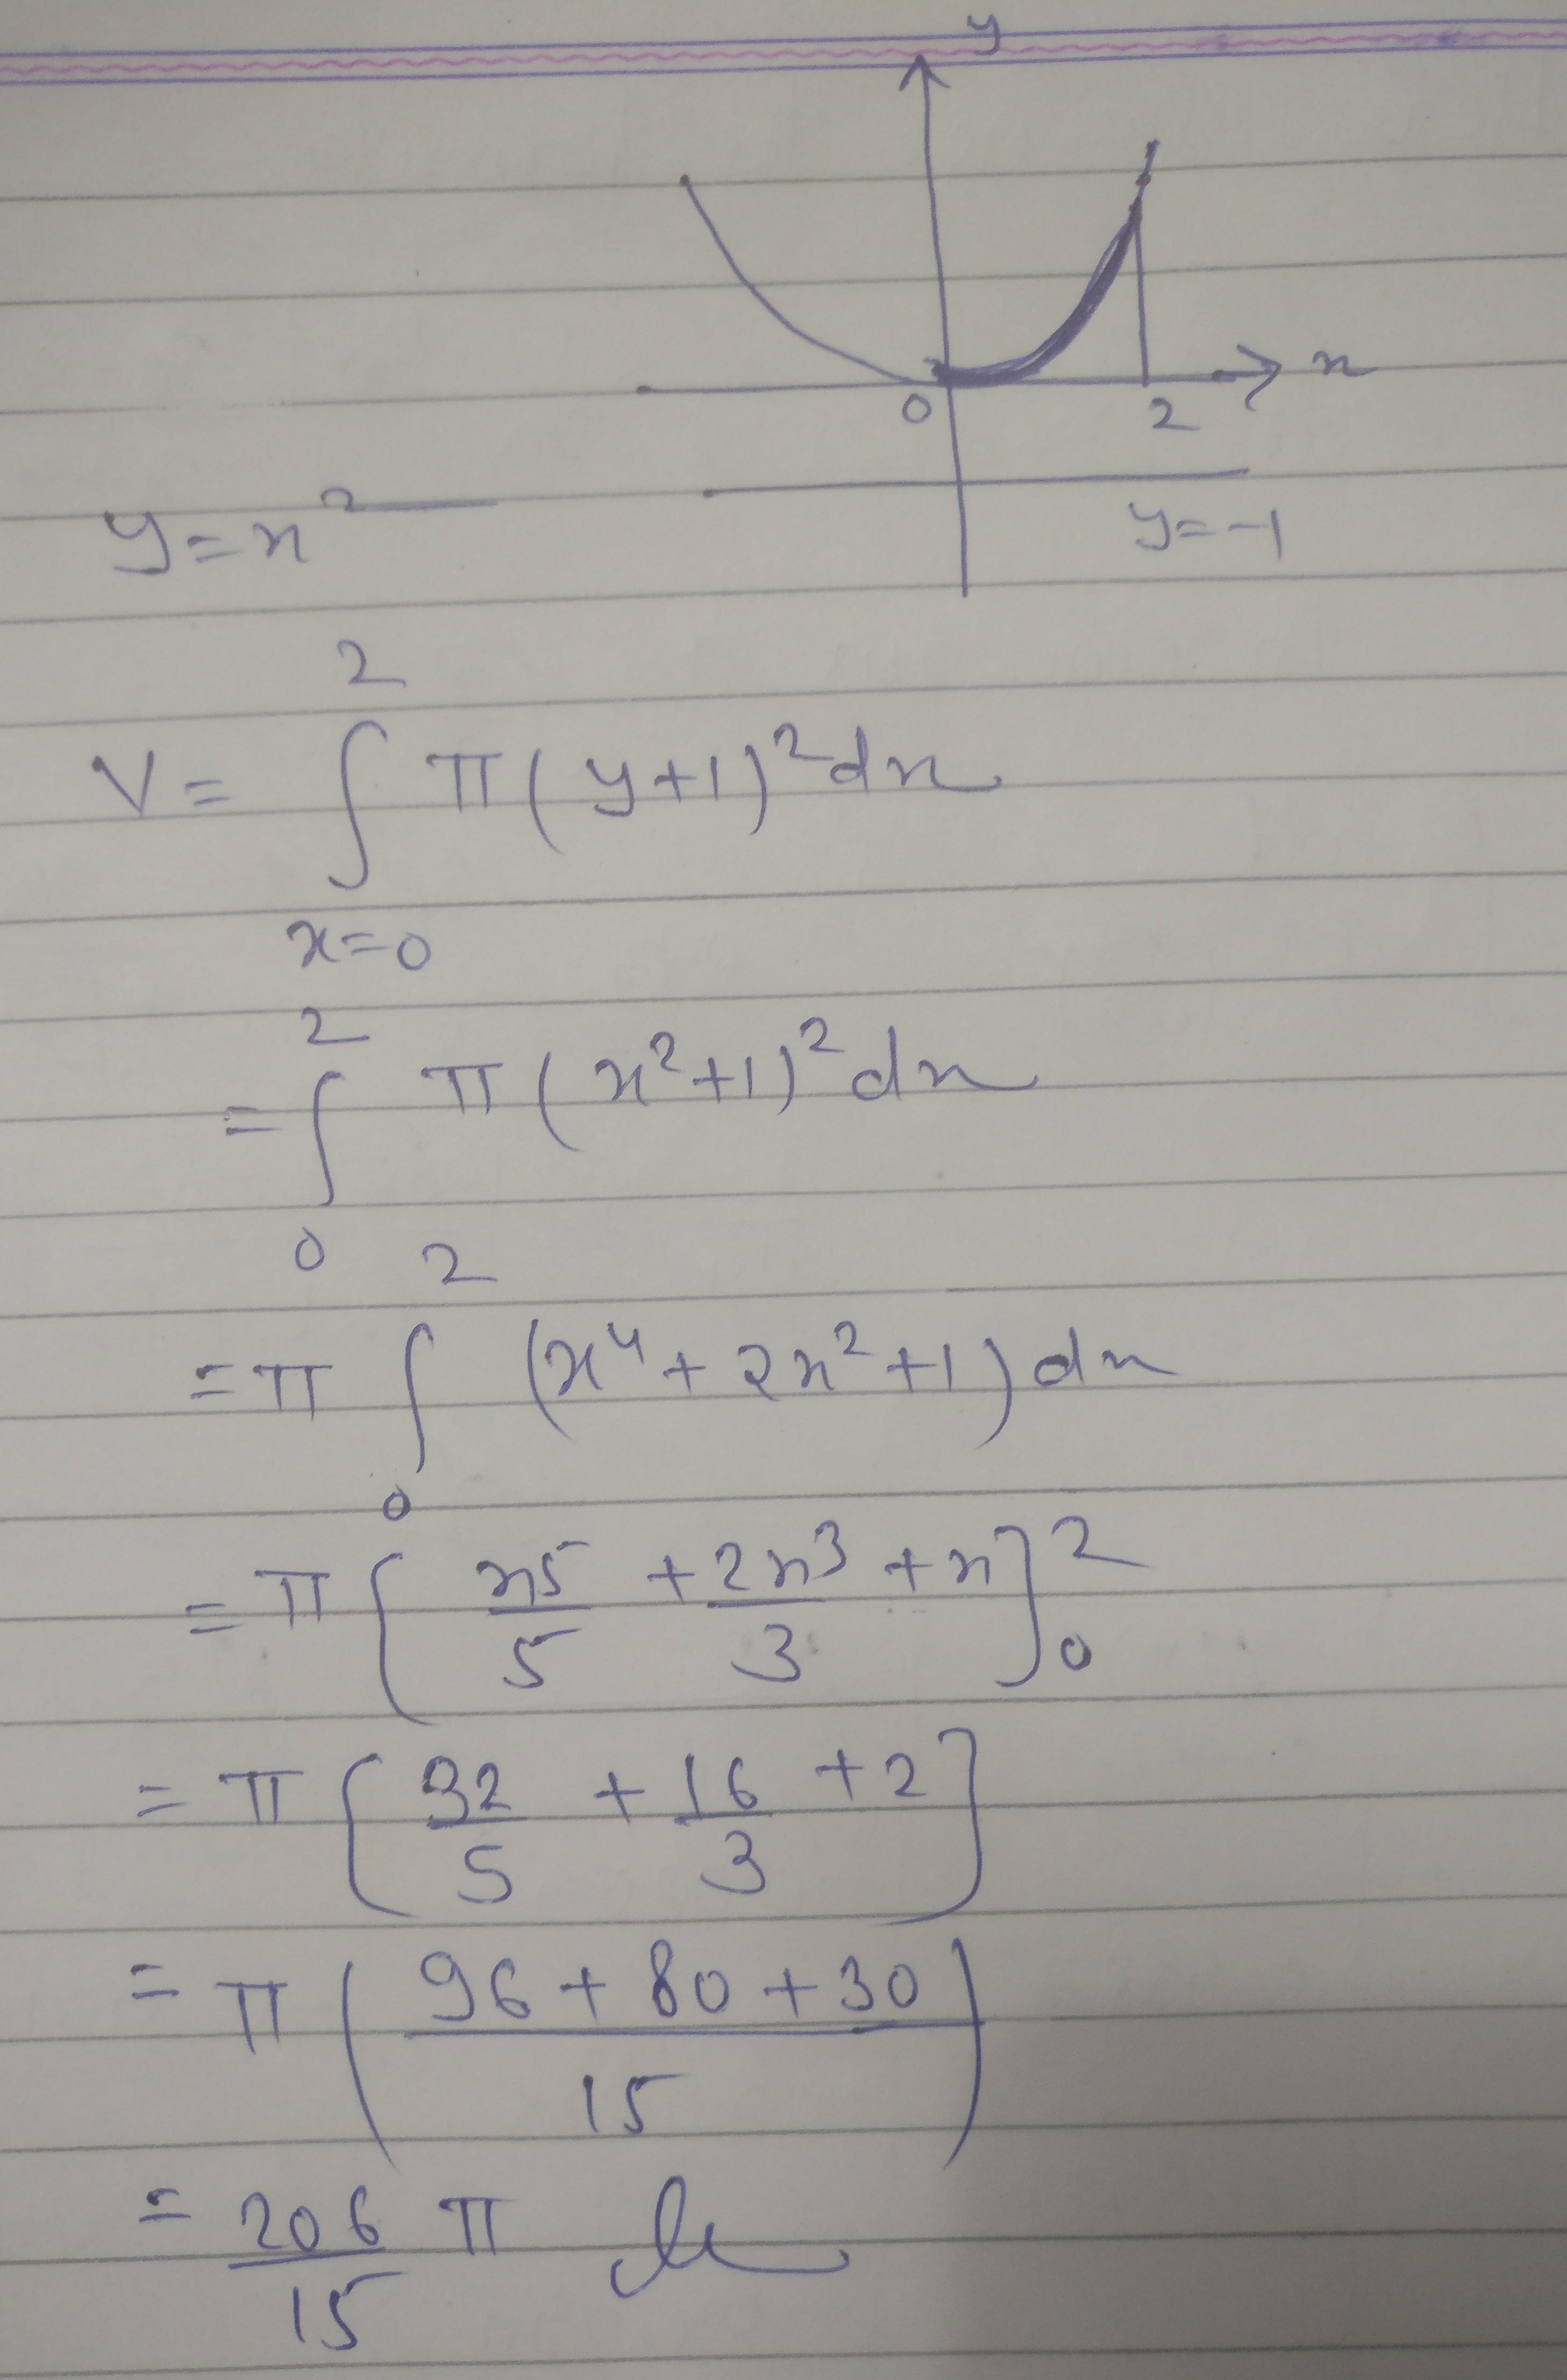 y
x
0 2
y = x²
y = -1
V = ∫_{x=0}^{2} π(y+1)² dx
= ∫_{0}^{2} π(x²+1)² dx
= π ∫_{0}^{2} (x⁴ + 2x² + 1) dx
= π [x⁵/5 + 2x³/3 + x]_{0}^{2}
= π [32/5 + 16/3 + 2]
= π ((96 + 80 + 30)/15)
= 206/15 π